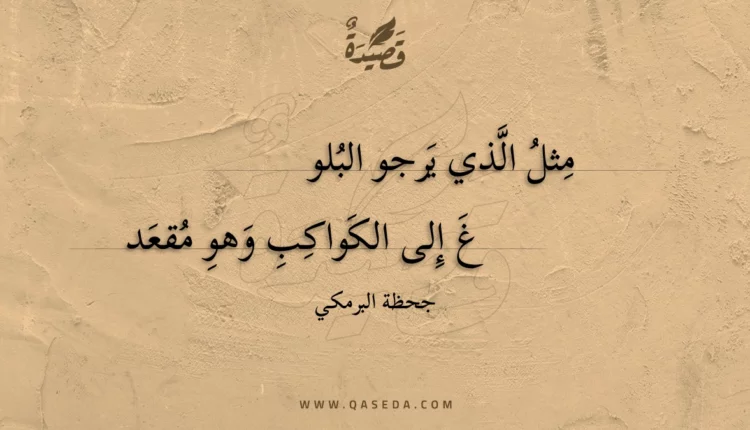 قَصِيْدَةٌ
مِثلُ الَّذي يَرجو البُلو
غَ إِلى الكَواكِبِ وَهوِ مُقعَد
جحظة البرمكي
WWW.QASEDA.COM